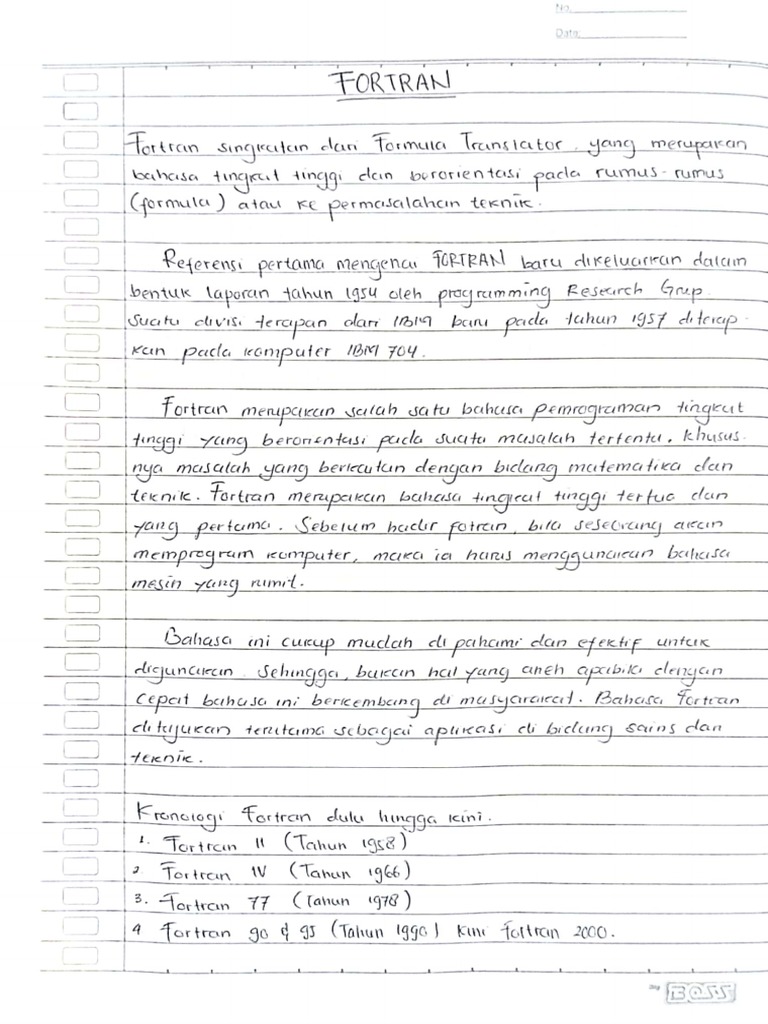 No.
Date:
FORTRAN
Fortran singkatan dari Formula Translator, yang merupakan
bahasa tingkat tinggi dan berorientasi pada rumus-rumus
(formula) atau ke permasalahan teknik.
Referensi pertama mengenai FORTRAN baru dikeluarkan dalam
bentuk laporan tahun 1954 oleh programming Research Grup
suatu divisi terapan dari IBM baru pada tahun 1957 diterap-
kan pada komputer IBM 704.
Fortran merupakan salah satu bahasa pemrograman tingkat
tinggi yang berorientasi pada suatu masalah tertentu, khusus-
nya masalah yang berkaitan dengan bidang matematika dan
teknik. Fortran merupakan bahasa tingkat tinggi tertua dan
yang pertama. Sebelum hadir fotran, bila seseorang akan
memprogram komputer, maka ia harus menggunakan bahasa
mesin yang rumit.
Bahasa ini cukup mudah di pahami dan efektif untuk
digunakan. Sehingga, bukan hal yang aneh apabila dengan
cepat bahasa ini berkembang di masyarakat. Bahasa Fortran
ditujukan terutama sebagai aplikasi di bidang sains dan
teknik.
Kronologi Fortran dulu hingga kini.
1. Fortran II (Tahun 1958)
2. Fortran IV (Tahun 1966)
3. Fortran 77 (Tahun 1978)
4 Fortran 90 & 95 (Tahun 1990) kini Fortran 2000.
BOSS